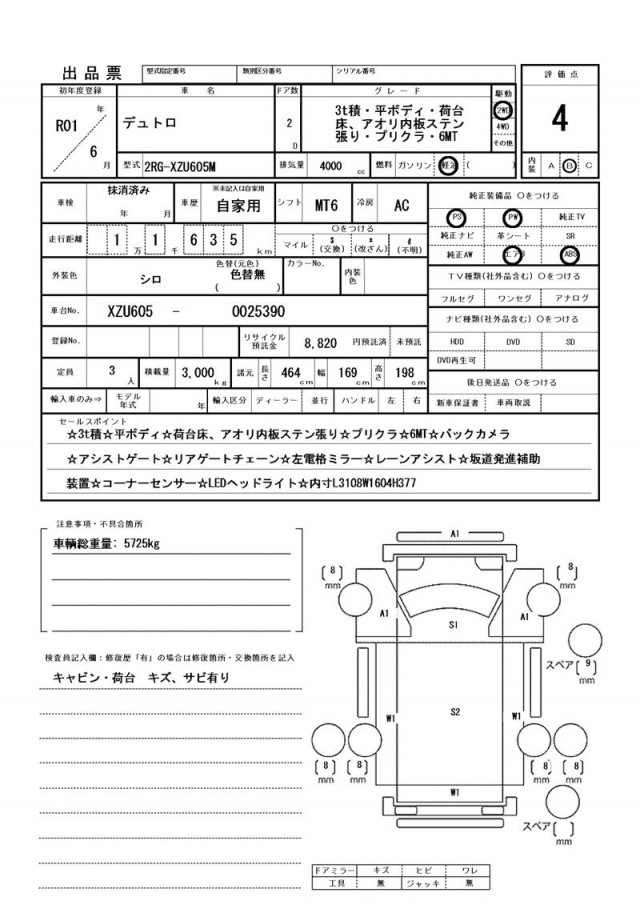 出品票 型式指定番号 類別区分番号 シリアル番号 評価点
初年度登録 車名 ドア数 グレード 駆動
R01 年 6 月 デュトロ 2 D
3t積・平ボディ・荷台
床、アオリ内板ステン
張り・プリクラ・6MT
2WD
4WD
その他
4
型式 2RG-XZU605M 排気量 4000 cc 燃料 ガソリン 軽油 ( ) 内装 A B C
車検 抹消済み 年 月 車歴 ※未記入は自家用 自家用 シフト MT6 冷房 AC 純正装備品 ○をつける
PS PW 純正TV
走行距離 1 万 1 千 6 3 5 km ○をつける マイル $ (交換) * (改ざん) # (不明) 純正ナビ 革シート SR
純正AW エアB ABS
外装色 シロ 色替(元色) 色替無 ( ) カラーNo. 内装色 TV種類(社外品含む) ○をつける
フルセグ ワンセグ アナログ
車台No. XZU605 - 0025390 ナビ種類(社外品含む) ○をつける
登録No. リサイクル預託金 8,820 円預託済 未預託 HDD DVD SD
DVD再生可
定員 3 人 積載量 3,000 kg 諸元 長さ 464 cm 幅 169 cm 高さ 198 cm 後日発送品 ○をつける
輸入車のみ⇒ モデル年式 年 輸入区分 ディーラー 並行 ハンドル 左 右 新車保証書 車両取説
セールスポイント
☆3t積☆平ボディ☆荷台床、アオリ内板ステン張り☆プリクラ☆6MT☆バックカメラ
☆アシストゲート☆リアゲートチェーン☆左電格ミラー☆レーンアシスト☆坂道発進補助
装置☆コーナーセンサー☆LEDヘッドライト☆内寸L3108W1604H377
注意事項・不具合箇所
車輌総重量: 5725kg
検査員記入欄：修復歴「有」の場合は修復箇所・交換箇所を記入
キャビン・荷台 キズ、サビ有り
A1
8 mm
8 mm
A1
S1
A1
スペア 9 mm
W1
S2
W1
8 mm
8 mm
8 mm
8 mm
W1
スペア mm
ドアミラー キズ ヒビ ワレ
工具 無 ジャッキ 無